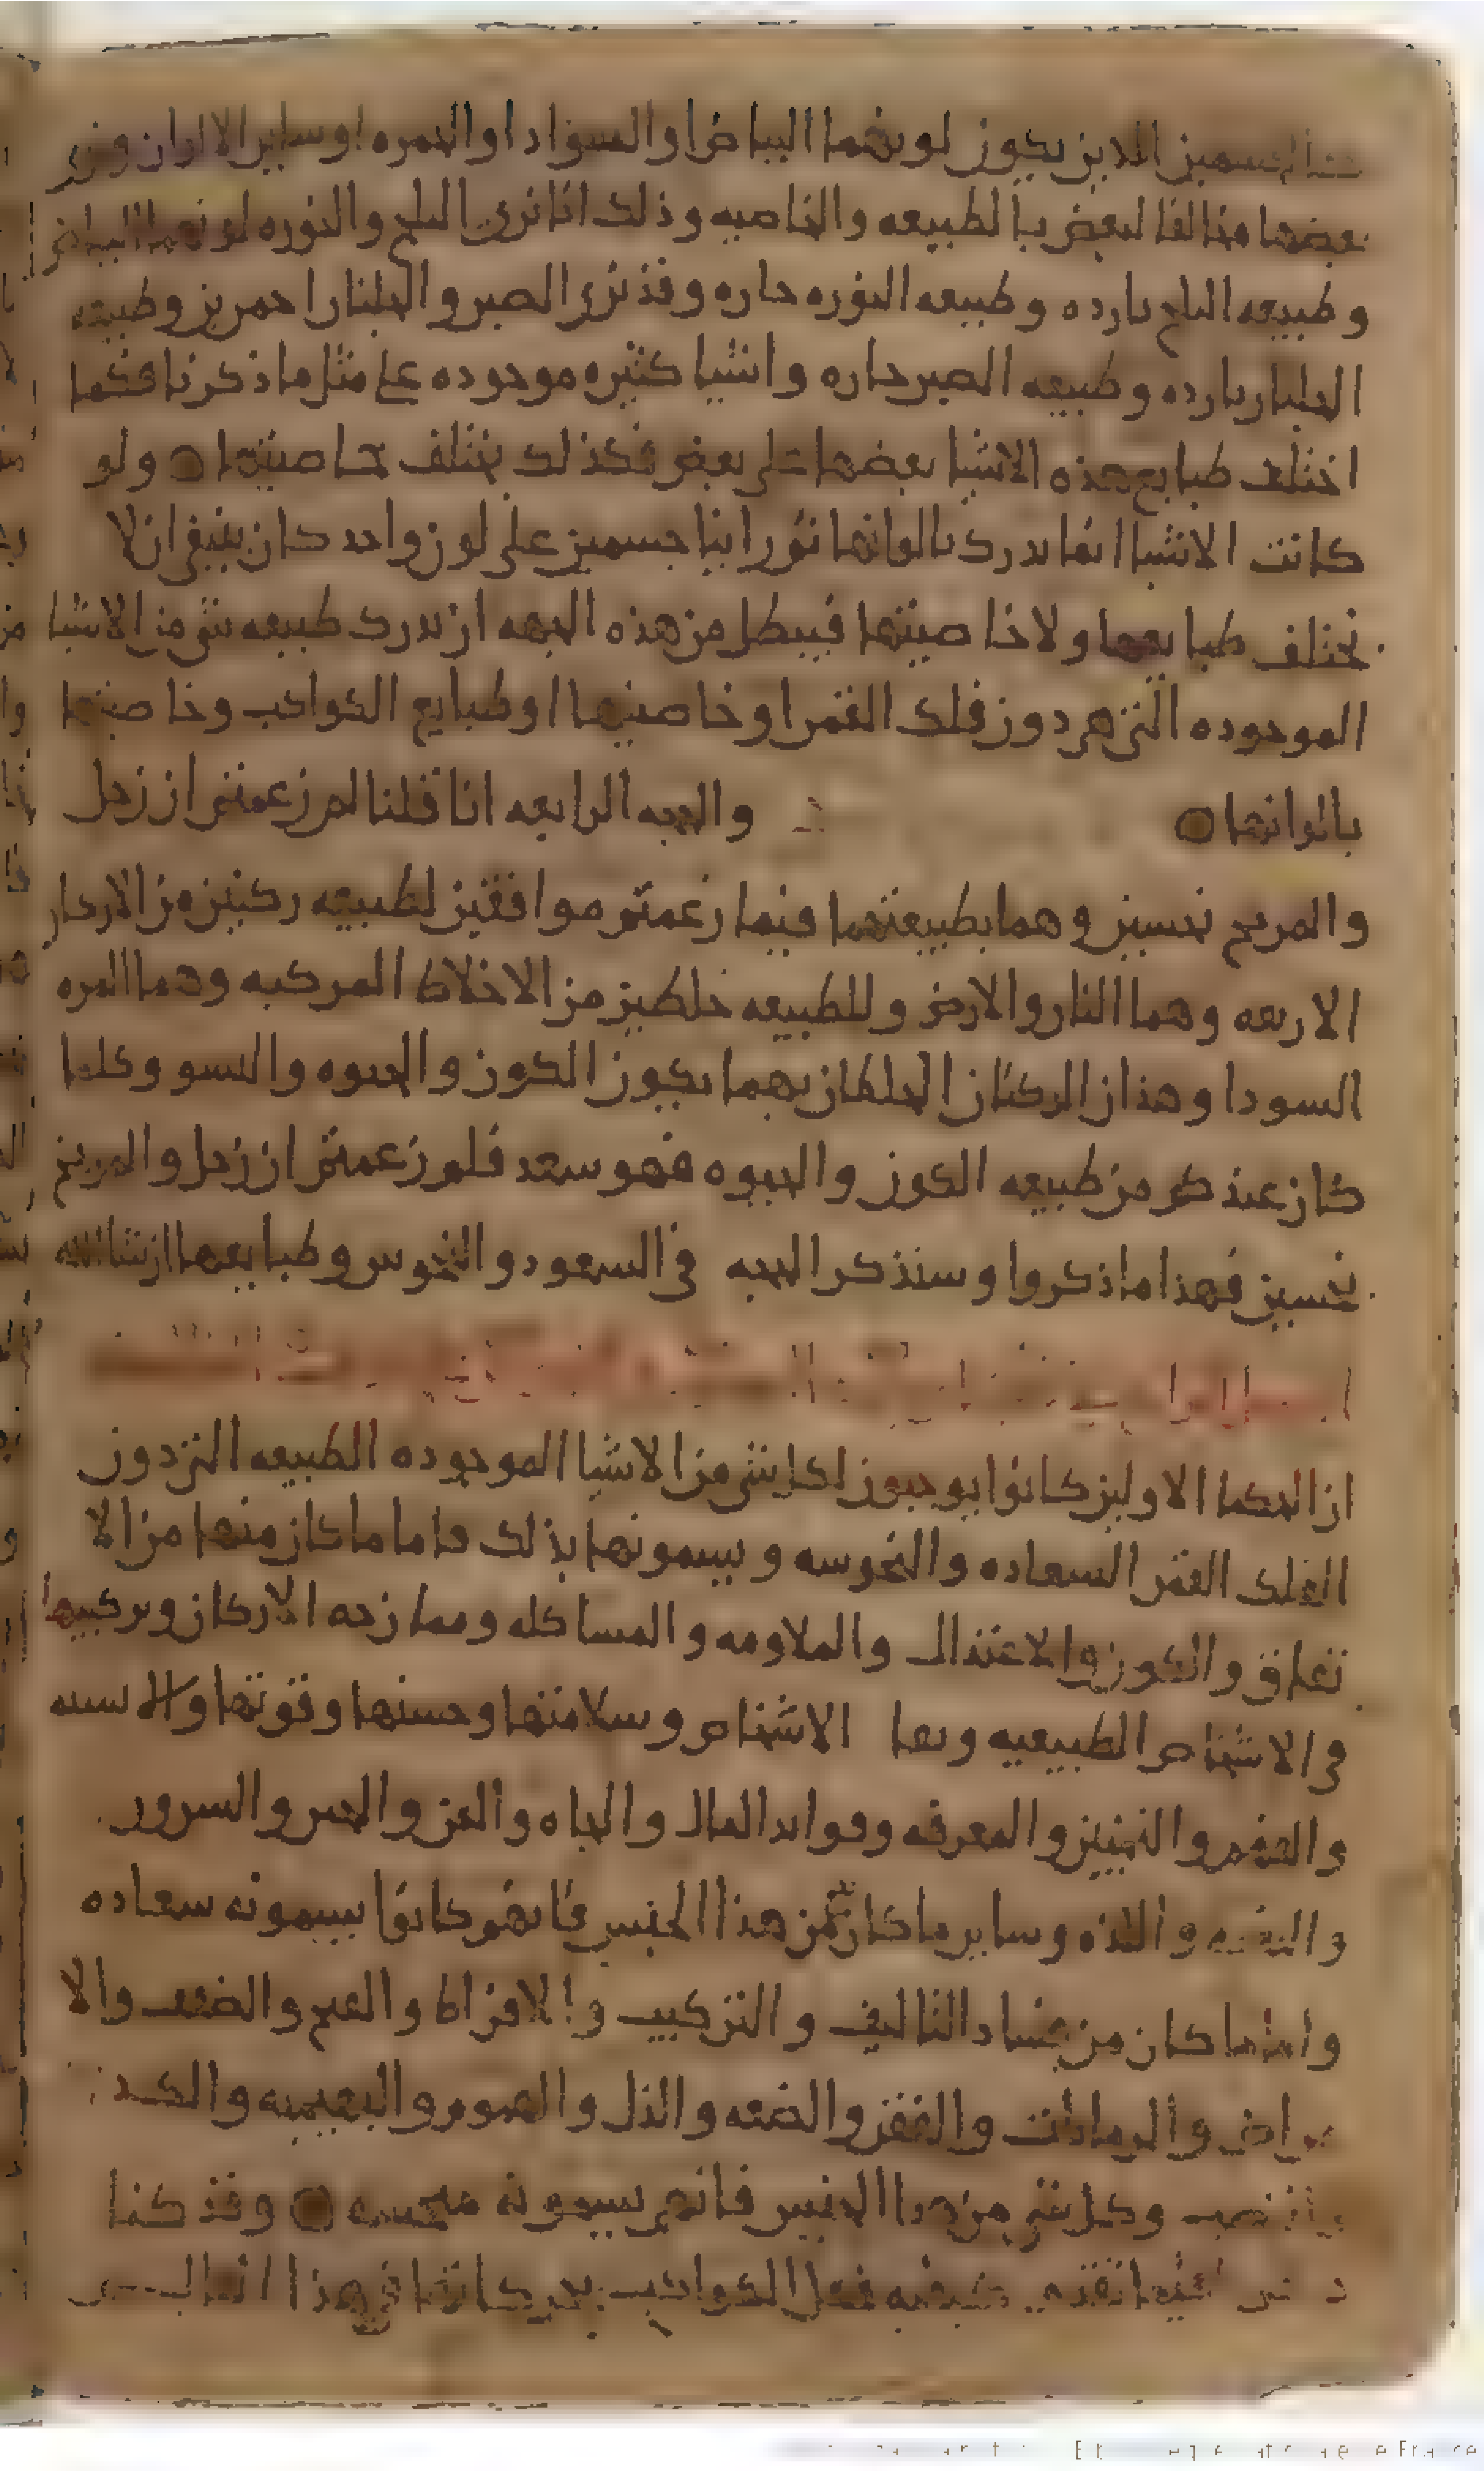 الجسمين الذين يكون لونهما البياض او السواد او الحمره او ساير الالوان ونرى
بعضها مخالفا لبعض بالطبيعه والخاصيه وذلك انا نرى الملح والنوره لونهما البياض
وطبيعه الملح بارده وطبيعه النوره حاره وقد نرى الصبر والجلنار احمرين وطبيعه
الجلنار بارده وطبيعه الصبر حاره واشيا كثيره موجوده على مثل ما ذكرنا فكما
اختلف طبايع هذه الاشيا بعضها على بعض فكذلك يختلف خاصيتها ○ ولو
كانت الاشيا انما يدرك بالوانها ثم راينا جسمين على لون واحد كان ينبغي ان لا
تختلف طبايعها ولا خاصيتها فيبطل من هذه الجهه ان يدرك طبيعه شي من الاشيا
الموجوده التي هي دون فلك القمر او خاصيتها او طبايع الكواكب وخاصيتها
بالوانها ○ والجهه الرابعه انا قلنا لم زعمتم ان زحل
والمريخ نحسين وهما بطبيعتهما فيما زعمتم موافقين لطبيعه ركنين من الاركان
الاربعه وهما النار والارض وللطبيعه خلطين من الاخلاط المركبه وهما المره
السودا وهذان الركنان الخلطان بهما يكون الكون والحيوه والنسو وكلما
كان عندكم من طبيعه الكون والحيوه فهو سعد فلم زعمتم ان زحل والمريخ
نحسين فهذا ما ذكروا وسنذكر الحجه في السعود والنحوس وطبايعها ان شا الله
ان الحكما الاولين كانوا يوجبون لكل شي من الاشيا الموجوده الطبيعه التي دون
الفلك القمر السعاده والنحوسه ويسمونها بذلك فاما ما كان منها من الا
تفاق والكون والاعتدال والملاومه والمساكله وممازجه الاركان وتركيبها
في الاشخاص الطبيعيه وبقا الاشخاص وسلامتها وحسنها وقوتها والا سنه
والفهم والتمييز والمعرفه وفوايد المال والجاه والعز والخير والسرور
واللذه وساير ما كان من هذا الجنس فانهم كانوا يسمونه سعاده
واما ما كان من فساد التاليف والتركيب والافراط والقبح والضعف والا
مراض والزمانات والفقر والضعه والذل والهموم والكد
وكل شي من هذا الجنس فانهم يسمونه منحسه ○ وقد كنا
فيما تقدم كيفيه فعل الكواكب بحركاتها في هذا العالم